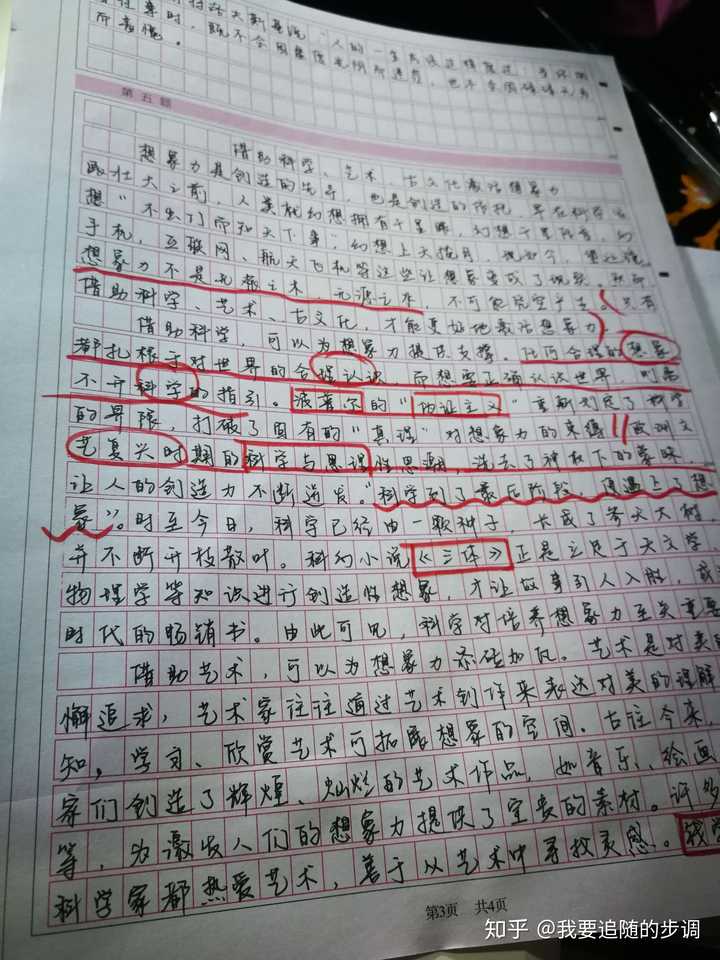 人的一生
既不会因
而羞愧。
第五题
借助科学、艺术、古文化激活想象力
想象力是创造的先导,也是创造的依托。早在科学
壮大之前,人类就幻想拥有千里眼,幻想千里
想"不出门而知天下事",幻想上天揽月,
手机,互联网、航天飞机等这些让想象变成了现实。然而
想象力不是无根之木、无源之水,不可能凭空产生。只有
借助科学、艺术、古文化,才能更好地激活想象力
借助科学,可以为想象力提供支撑。任何合理的想象
都扎根于对世界的合理认识,而想要正确认识世界,
不开科学的指引。波普尔的"伪证主义"重新划定了科学
的界限,打破了固有的"真理"对想象力的束缚 欧洲文
艺复兴时期的科学与思理性思潮,洗去了神权下的蒙昧,
让人的创造力不断迸发。"科学到了最后阶段,便遇上了想
象"。时至今日,科学已经由一颗种子,长成了参天大树,
并不断开枝散叶。科幻小说《三体》正是立足于天文学
物理学等知识进行创造性想象,才让故事引人入胜,成
时代的畅销书。由此可见,科学对培养想象力至关重要
借助艺术,可以为想象力添砖加瓦。艺术是对美的
懈追求,艺术家往往通过艺术创作来表达对美的理解
知,学习、欣赏艺术可拓展想象的空间。古往今来,
家们创造了辉煌、灿烂的艺术作品,如音乐、绘画
等,为激发人们的想象力提供了宝贵的素材。许多
科学家都热爱艺术,善于从艺术中寻找灵感。钱学
第3页 共4页
知乎 @我要追随的步调